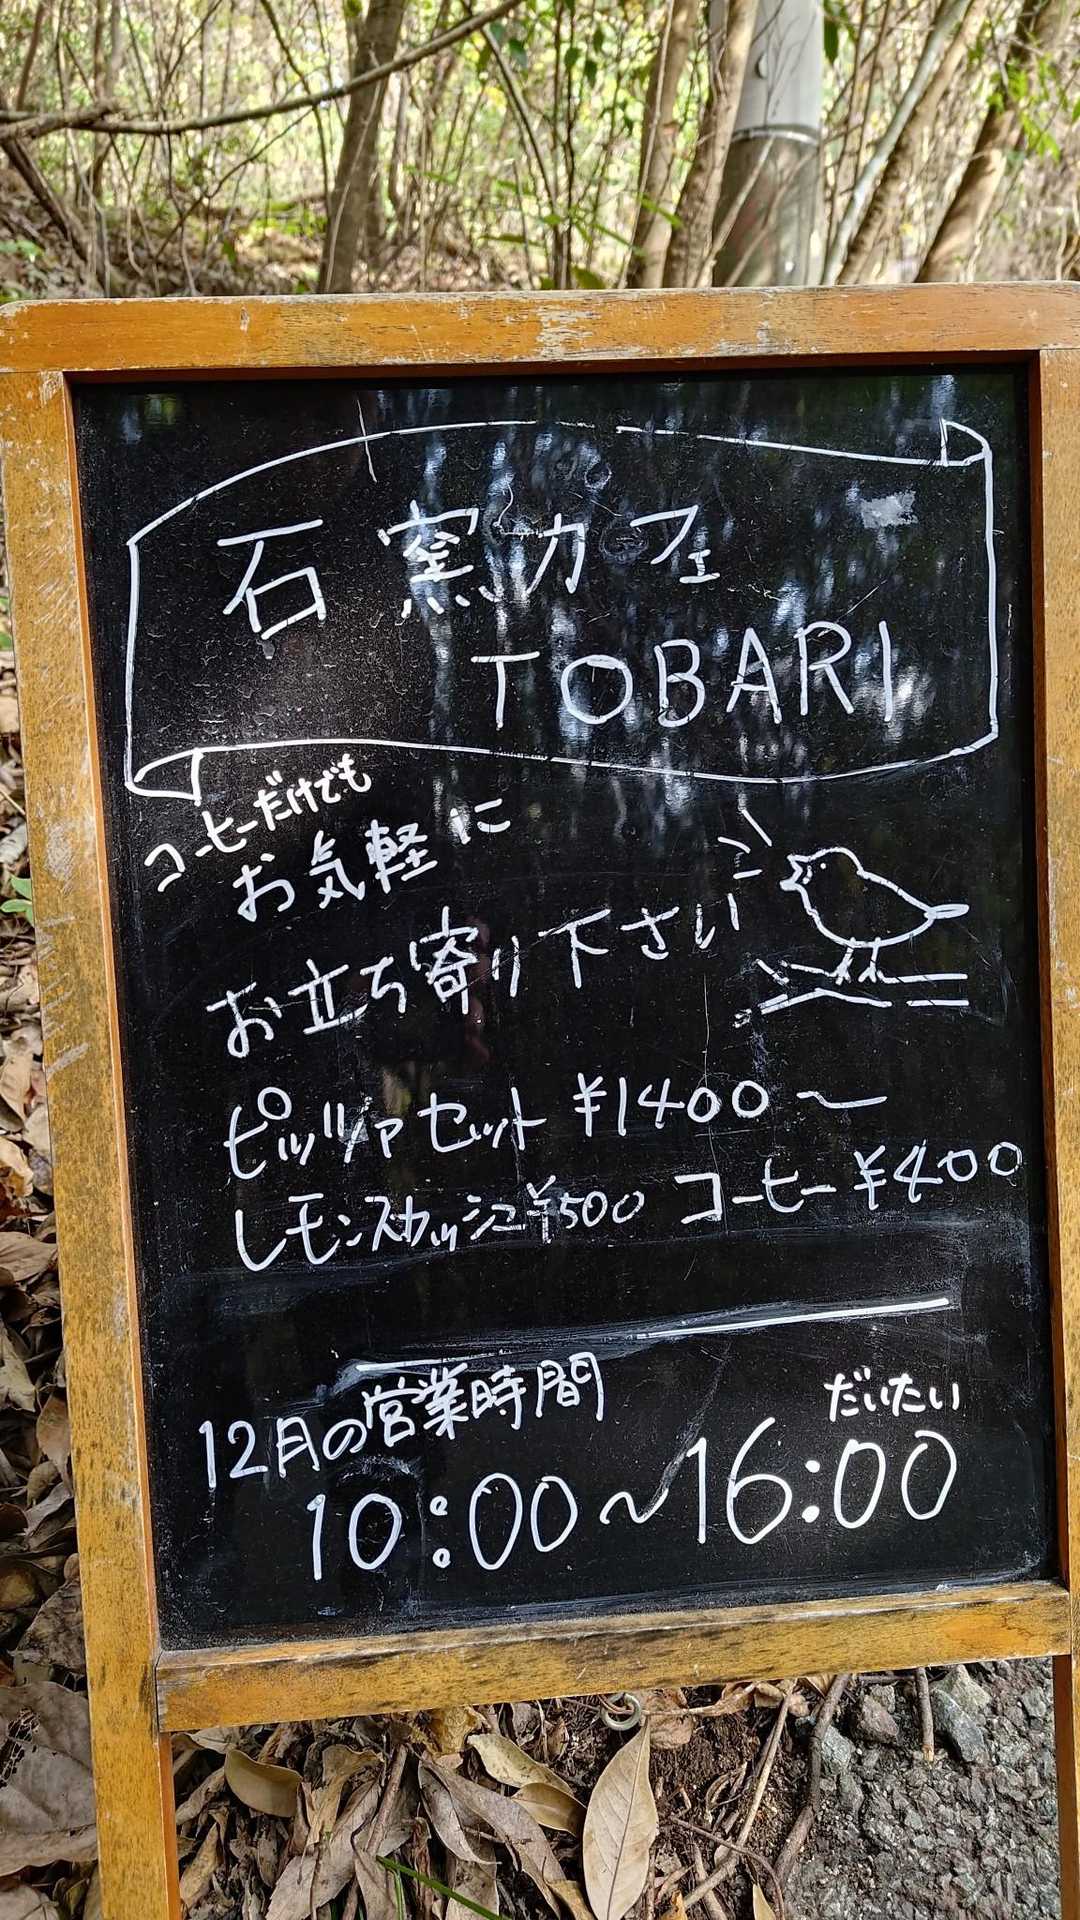 石窯カフェ
TOBARI
コーヒーだけでも
お気軽に
お立ち寄り下さい
ピッツァセット ¥1400〜
レモンスカッシュ¥500 コーヒー¥400
12月の営業時間
だいたい
10:00〜16:00